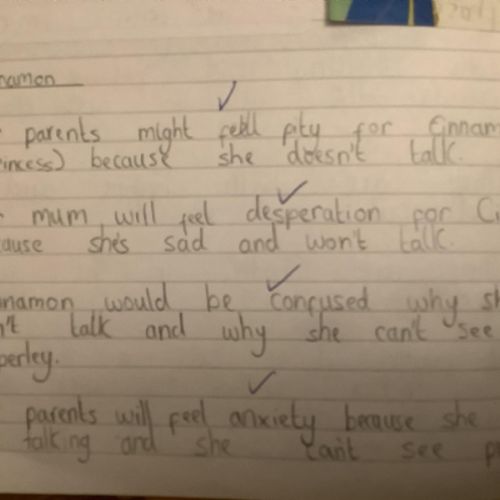 namon
parents might feel pity for Cinnam
incess) because she doesn't talk.
mum will feel desperation for Ci
ause she's sad and won't talk.
namon would be confused why sh
n't talk and why she can't see
perley.
parents will feel anxiety because she
talking and she can't see p